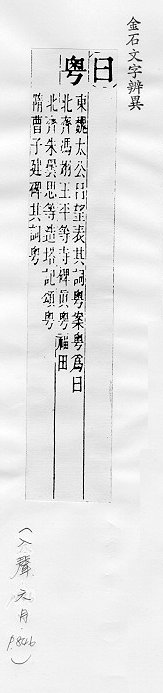 金石文字辨異
曰
粵
東魏太公呂望表其詞粵案粵爲曰
北齊馮翊王平等寺碑眞粵福田
北齊朱曇思等造塔記頌粵
隋曹子建碑其詞粵
(入聲 六月.